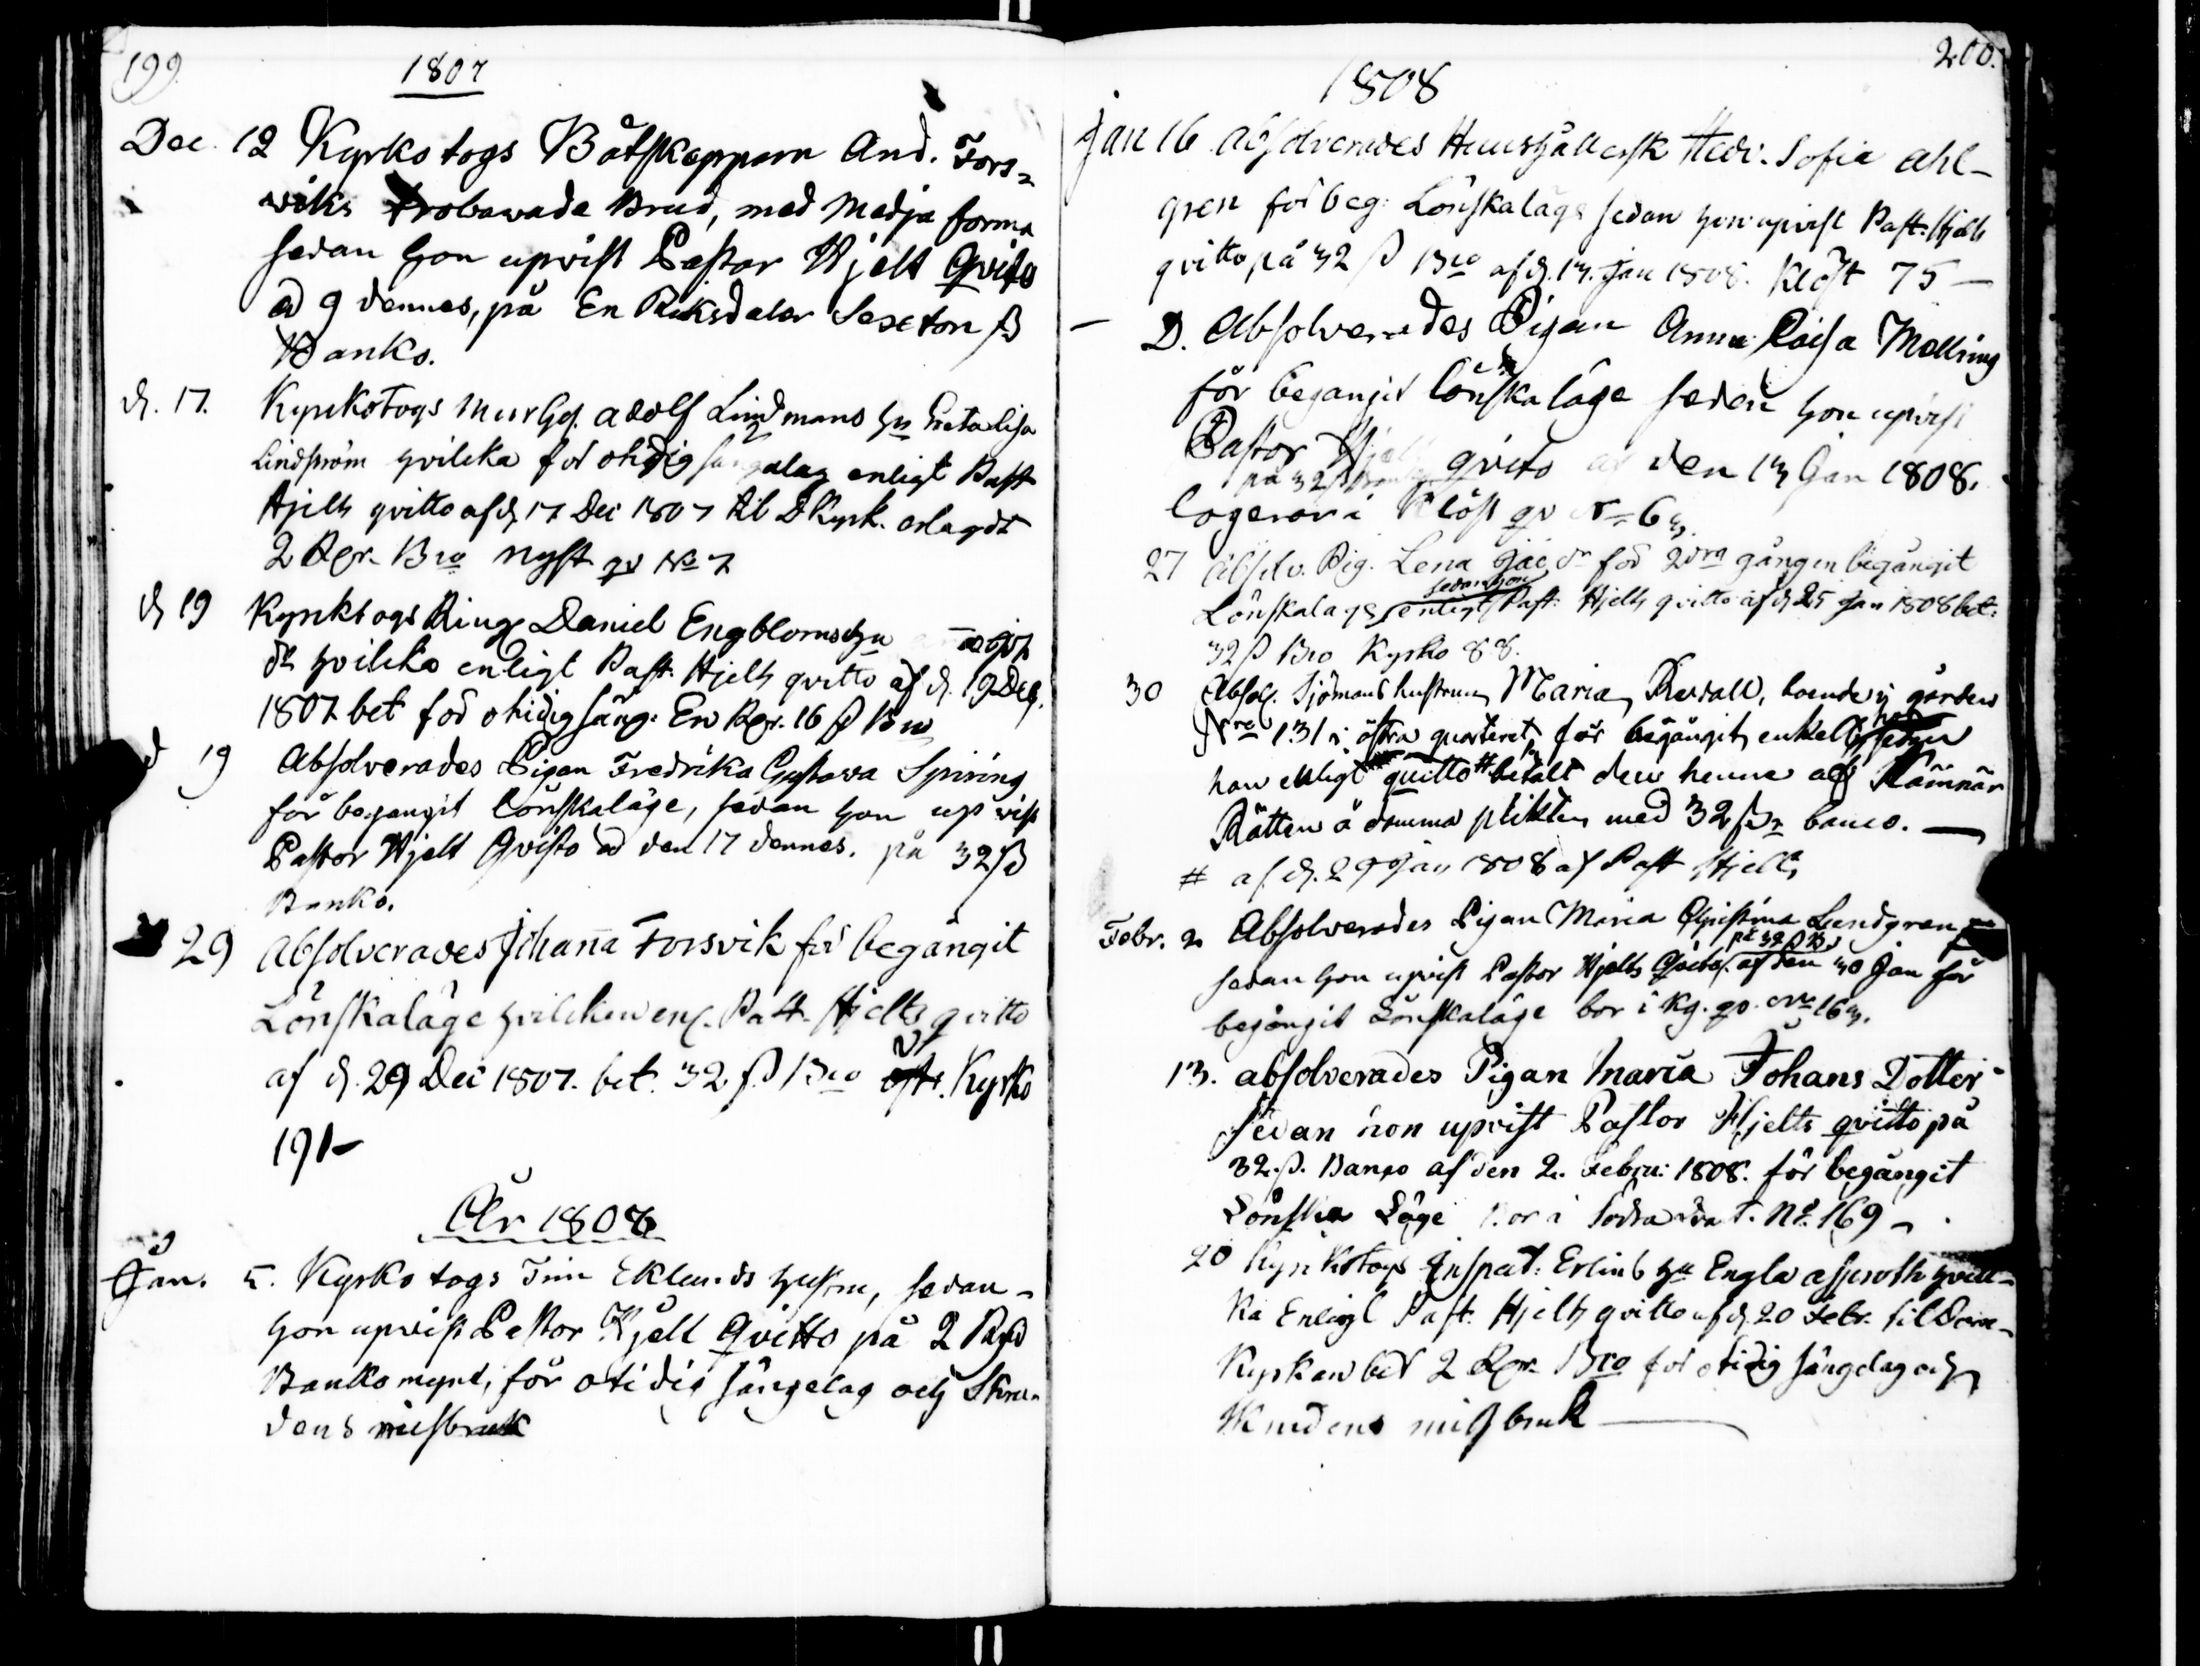 199.
1807
Dec. 12 Kyrkotogs Båtskepparn And. Fors-
wiks trolovade Brud, med Medja
sedan hon upvist Pastor Hjelt Qvito
ad 9 dennes, på En Riksdaler Sexton ß
Banko.
d. 17. Kyrkotogs Adolf Lindmans hu Greta Lisa
Lindström hvilcka för otidig sängalag enligt Past
Hjelts qvitto af d. 17 Dec 1807 til DKyrk. erlagdt
2 Rdr. Bco Nyst qv No 7
d 19 Kyrktogs Ring Daniel Engbloms hu
dr hvilcka enligt Past. Hjelts qvitto af d. 19 Dec.
1807 bet för otidig säng: En Rdr. 16 ß Bco
d 19 Absolverades Pigan Fredrika Gustava Spiring
för begangit Lönskaläge, sedan hon upvist
Pastor Hjelt Qvitto ad den 17 dennes. på 32 ß
Banko.
29 Absolverades Johanna Forsvik för begångit
Lönskaläge hvilcken enl. Past. Hjelts qvitto
af d. 29 Dec 1807. bet. 32 ß Bco Kyrko
191-
År 1808
Jan. 5. Kyrkotogs Tim Eklunds hustru, sedan
hon upvist Pastor Hjelt Qvitto på 2 Rd
Banko mynt, för otidig sängelag och Skru-
dens missbruk
200.
1808
Jan 16 absolverades Hushållersk Hedv. Sofia Ahl-
gren för beg. Lönskaläge sedan hon upvist Past. Hjelts
qvitto på 32 ß Bco af d. 13. Jan 1808. Klöst 75 —
— D. Absolverades Pigan Anna Caisa Mellring
för begangit lönskaläge sedan hon upvist
Pastor Hjelts qvito af den 13 Jan 1808.
på 32 ß
logerar i Klöst qv No 63
27 Absolv. Pig. Lena Jac dr för 2dra gången begångit
sedan hon
Lönskaläge enligt Past. Hjelts qvitto af d. 25 Jan 1808 bet:
32 ß Bco Kyrko 88.
30 Absol. Sjömans hustrun Maria Revall, boende i gården
Nro 131 i östra qvarteret för begångit enkelt
hon enligt quitto # betalt den henne af Kämnär
Rätten ådömma plikten med 32 ß banco. —
# af d. 29 Jan 1808 af Past Hjelts
Febr. 2 Absolverades Pigan Maria Christina Lundgren
på 32 ß B
sedan hon upvist Pastor Hjelts Qvito af den 30 Jan för
begångit Lönskaläge bor i Kg. qv. No 163.
13. absolverades Pigan Maria Johans Dotter
sedan hon upvist Pastor Hjelts qvitto på
32 ß. Banco af den 2. Febru: 1808. för begångit
Lönska Läge bor i Södra No. 169 -
20 Kyrkotogs Inspect: Erlinb hu Engla hvil-
ka Enligt Past. Hjelts qvitto af d. 20 Febr. til Dom-
Kyrkan bet 2 Rdr. Bco för otidig sängelag och
Skrudens missbruk —